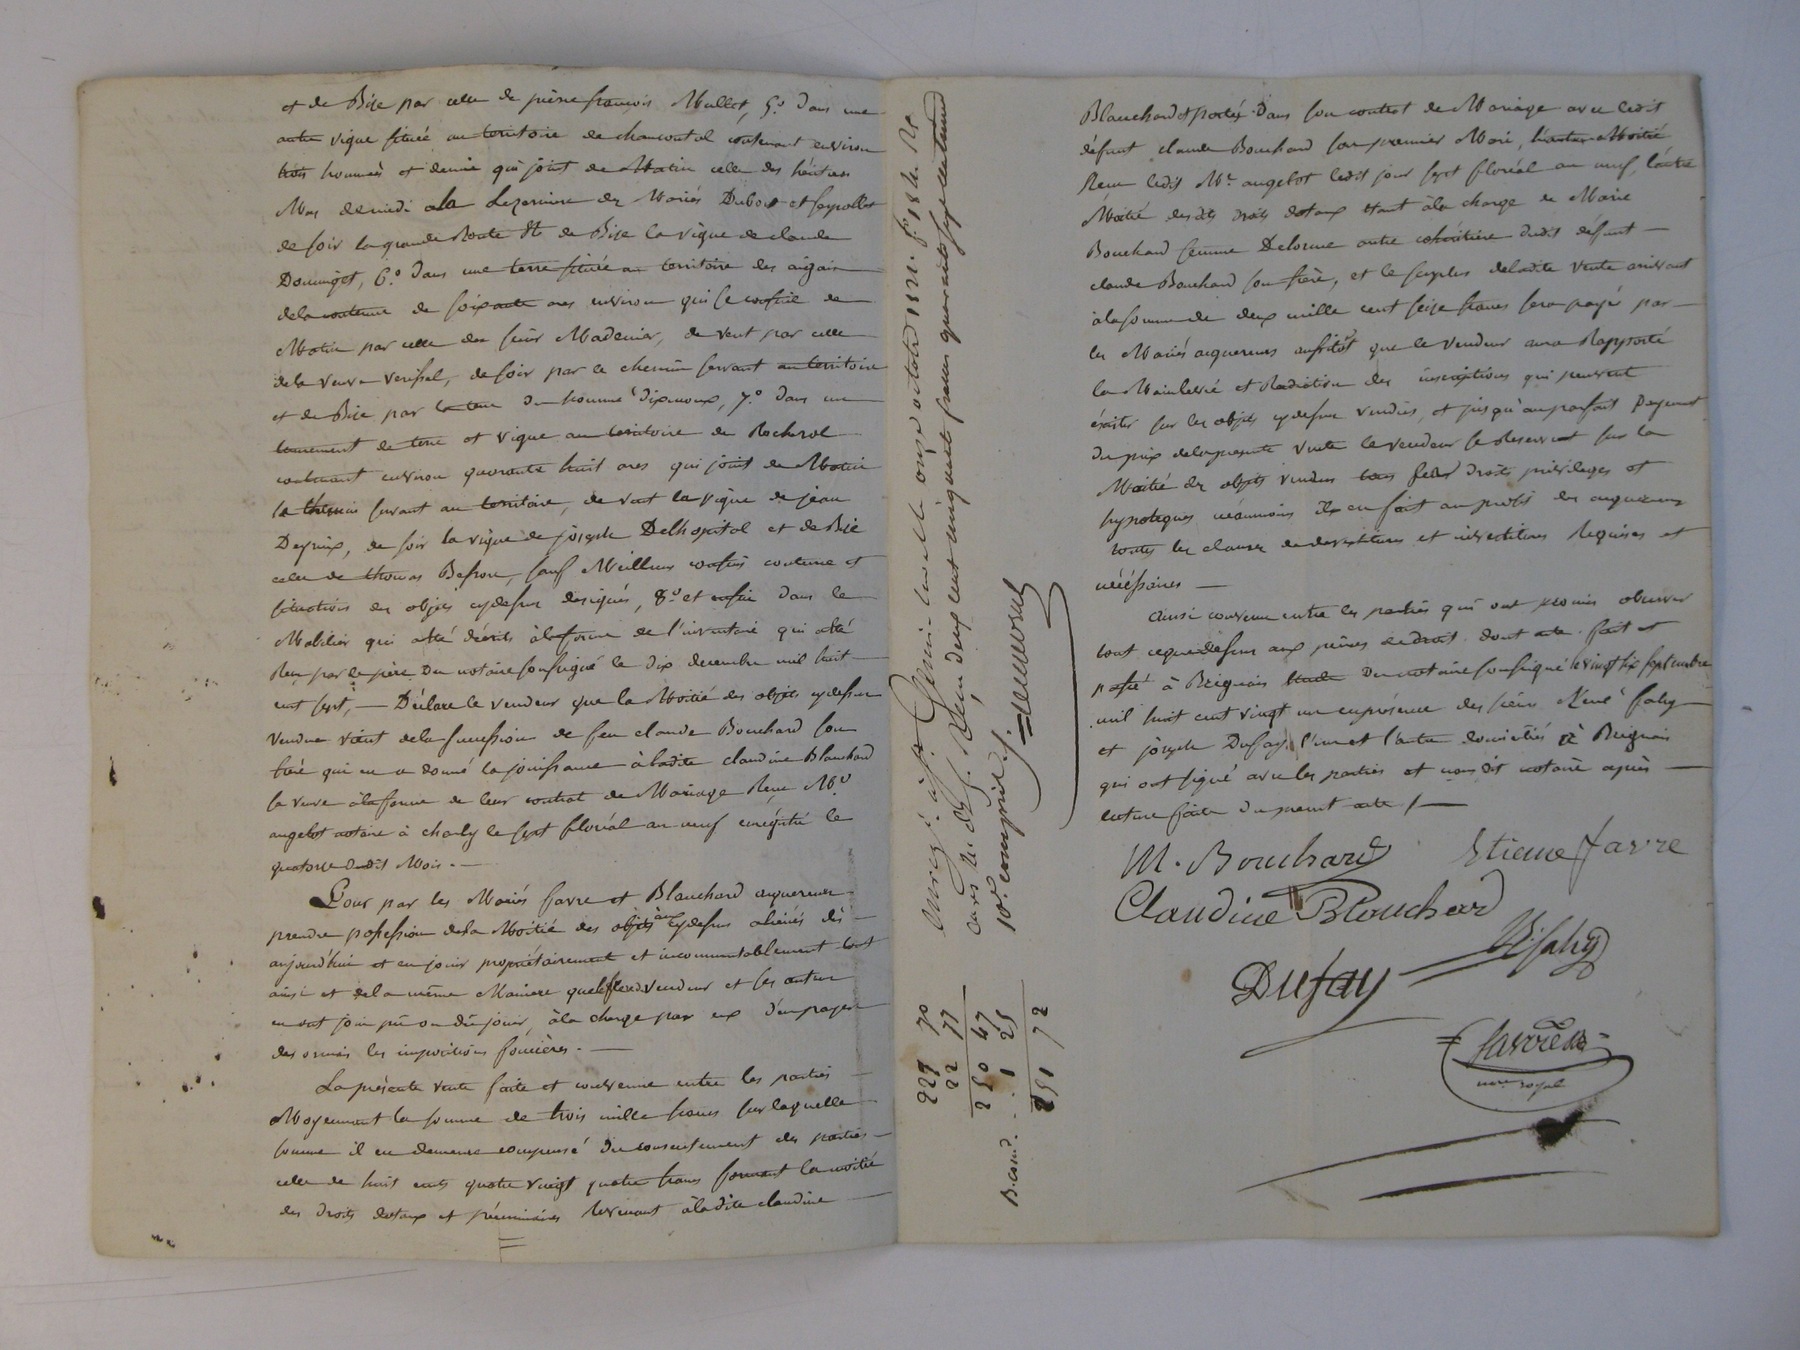 et de Bise par celle de pierre françois Mullet, 5.º dans une
autre vigne située au territoire de chancontal contenant environ
trois hommées et demie qui joint de Matin celle des héritiers
Mas de midi a la Lezerniere des Mariés Dubost et
de soir la grande Route & de Bise la vigne de claude
Dominget, 6.º dans une terre située au territoire des aigais
de la contenue de soixante ares environ qui se confine de
Matin par celle des sieur Madenier, de vent par celle
de la veuve Verissel, de soir par le chemin servant au territoire
et de Bise par la terre du nommé dixnoux, 7.º dans un
tenement de terre et vigne au territoire de Rocherol
contenant environ quarante huit ares qui joint de Matin
le chemin servant au territoire, de vent la vigne de jean
Deprux, de soir la vigne de joseph Delhopital et de Bise
celle de thomas Besson, sauf Meilleurs confins contenue et
situations des objets cydessus designés, 8.º et enfin dans le
Mobilier qui a été décrits à la forme de l'inventaire qui a été
Reçu par le père du notaire soussigné le dix decembre mil huit
cent sept, — Déclare le vendeur que la Moitié des objets cydessus
vendue vient de la succession de feu claude Bouchard son
frère qui en a donné la jouissance à ladite claudine Blanchard
sa veuve à la forme de leur contrat de Mariage Reçu Me.
angelot notaire à charly le sept floréal an neuf enregistré le
quatorze dudit Mois. —
Pour par les Mariés favre et Blanchard acquereurs
prendre possession de la Moitié des objets à eux cydessus aliénés dès
aujourd'hui et en jouir propriétairement et incommutablement tout
ainsi et de la même Maniere que ledit vendeur et ses auteurs
en ont joui pû ou dû jouir, à la charge par eux d'en payer
des ormais les impositions foncières. —
La présente vente faite et convenue entre les parties
Moyennant la somme de trois mille francs sur laquelle
somme il en demeure compensé du consentement des parties
celle de huit cents quatre vingt quatre francs formant la moitié
des droits dotaux et pécuniaires revenant à ladite claudine
Enreg.é à St Genis-Laval le onze octobre 1821. f.º 184. R.º
cases 2. et s. Reçu deux cent cinquante francs quarante sept centimes
10.e compris.
227 70
22 77
250 47
1 25
251 72
Blanchard et portés dans son contrat de Mariage avec ledit
défunt claude Bouchard son premier Mari,
Reçu ledit Me. angelot ledit jour sept floréal an neuf, l'autre
Moitié desdits droits dotaux étant à la charge de Marie
Bouchard femme Delorme autre cohéritière dudit défunt —
claude Bouchard son frère, et le surplus de ladite vente arrivant
à la somme de deux mille cent seize francs sera payé par —
les Mariés acquereurs aussitôt que le vendeur aura Rapporté
la Mainlevée et Radiation des inscriptions qui peuvent
éxister sur les objets cydessus vendus, et jusqu'au parfait payement
du prix de la présente vente le vendeur se Reservant sur la
Moitié des objets vendus tous ses droits privileges et
hypoteques neanmoins il en fait au profit des acquereurs
toutes les clauses de devestitures et investitures Requises et
nécéssaires —
Ainsi convenu entre les parties qui ont promis observer
tout ce que dessus aux peines de droit. dont acte. fait et
passé à Brignais Etude du notaire soussigné le vingt six septembre
mil huit cent vingt un en présence des sieurs René fahy
et joseph Dufay l'un et l'autre domiciliés à Brignais
qui ont signé avec les parties et nous dit notaire après —
lecture faite du present acte /—
M. Bouchard Etienne favre
Claudine Blouchard
R. fahy
Dufay
favre
nre. royal